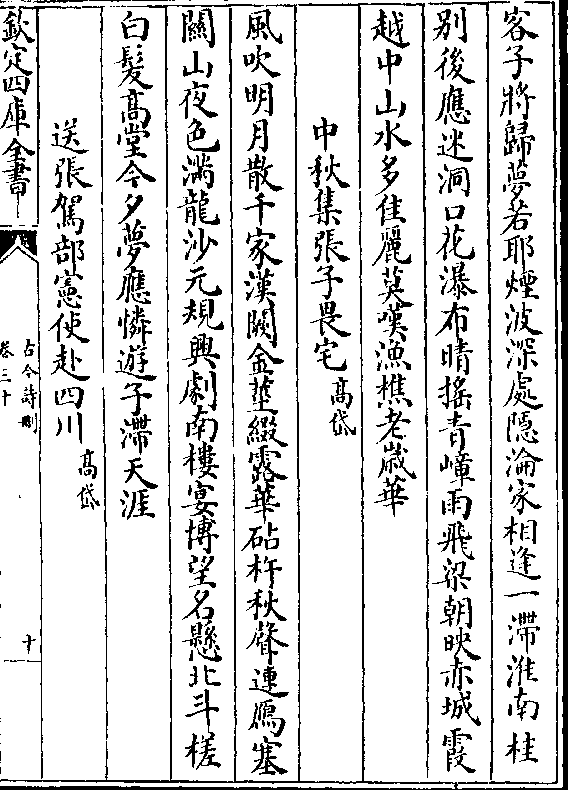 客子將歸夢若耶煙波深處隱淪家相逢一滯淮南桂
别後應迷洞口花瀑布晴搖青嶂雨飛梁朝映赤城霞
越中山水多佳麗莫嘆漁樵老嵗華
中秋集張子畏宅 高岱
風吹明月散千家漢闕金莖綴露華砧杵秋聲連鴈塞
關山夜色滿龍沙元規興劇南樓宴博望名懸北斗槎
白髮高堂今夕夢應憐遊子滯天涯
送張駕部憲使赴四川 高岱
欽定四庫全書
古今詩刪
卷三十
十